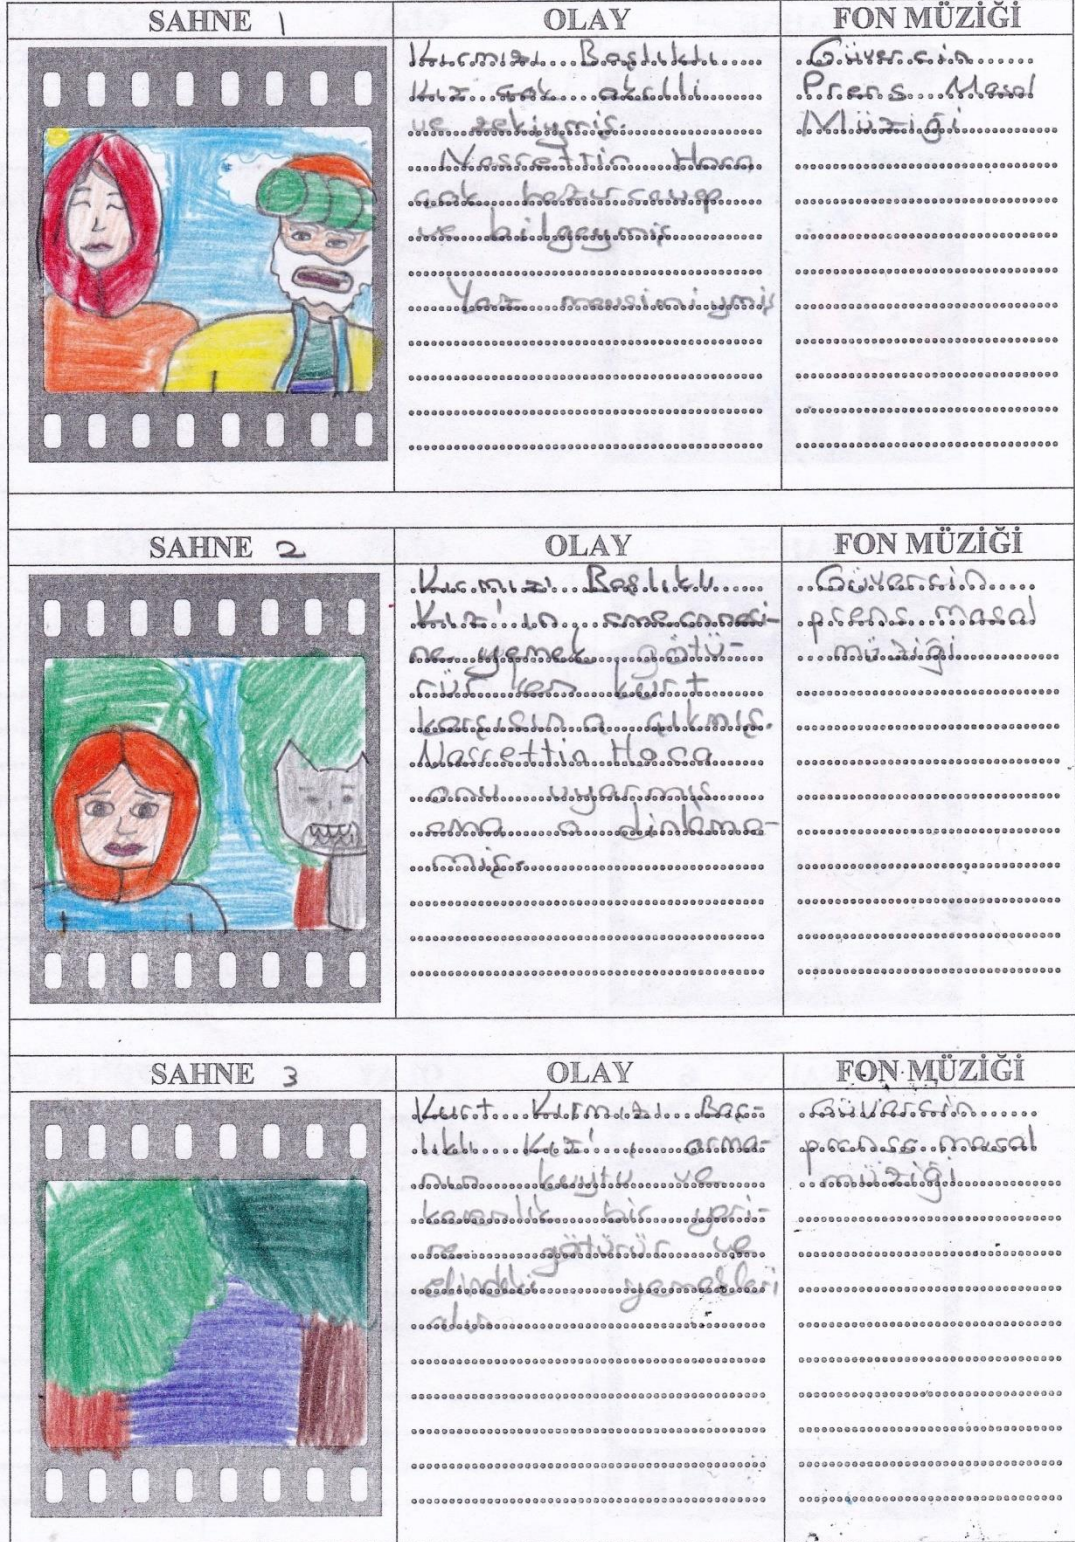 SAHNE 1
OLAY
FON MÜZİĞİ
Kırmızı Başlıklı
Kız çok akıllı
ve zekiymiş.
Nasrettin Hoca
çok hazırcevap
ve bilgeymiş
Yaz mevsimiymiş
Güvercin
Prens Masal
Müziği
SAHNE 2
OLAY
FON MÜZİĞİ
Kırmızı Başlıklı
Kız'ın anneannesi-
ne yemek götü-
rürken kurt
karşısına çıkmış.
Nasrettin Hoca
onu uyarmış
ama o dinleme-
miş.
Güvercin
prens masal
müziği
SAHNE 3
OLAY
FON MÜZİĞİ
Kurt Kırmızı Baş-
lıklı Kız'ı orma-
nın kuytu ve
karanlık bir yeri-
ne götürür ve
elindeki yemekleri
alır
Güvercin
prense masal
müziği